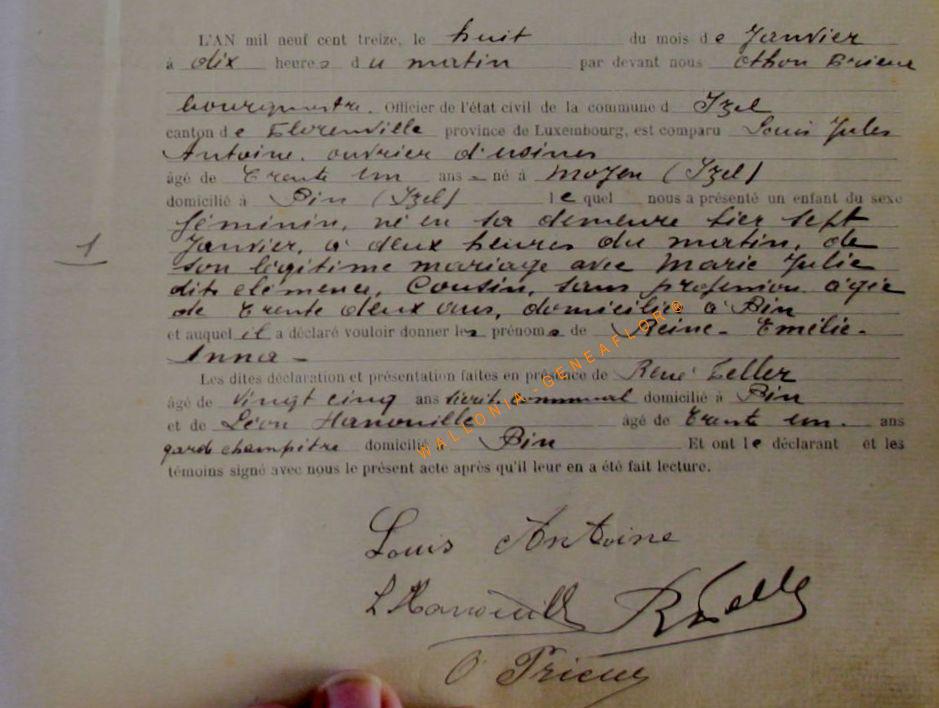 L'AN mil neuf cent treize, le huit du mois de Janvier
à dix heures du matin par devant nous Othon Prieur
bourgmestre. Officier de l'état civil de la commune d Izel
canton de Florenville province de Luxembourg, est comparu Louis Jules
Antoine. ouvrier d'usines
âgé de trente un ans né à Moyen (Izel)
domicilié à Pin (Izel) lequel nous a présenté un enfant du sexe
féminin, né en sa demeure hier sept
Janvier, à deux heures du matin, de
son légitime mariage avec Marie Julie
dite clémence, Cousin, sans profession âgée
de trente deux ans, domiciliée à Pin
et auquel il a déclaré vouloir donner les prénoms de Reine - Emélie -
Anna -
Les dites déclaration et présentation faites en présence de René Zeller
âgé de vingt cinq ans secrét. communal domicilié à Pin
et de Léon Hanouille âgé de trente un. ans
garde champêtre domicilié à Pin Et ont le déclarant et les
témoins signé avec nous le présent acte après qu'il leur en a été fait lecture.
1
Louis Antoine
L Hanouille RZeller
O Prieur
WALLONIA-GENEAFLOR®